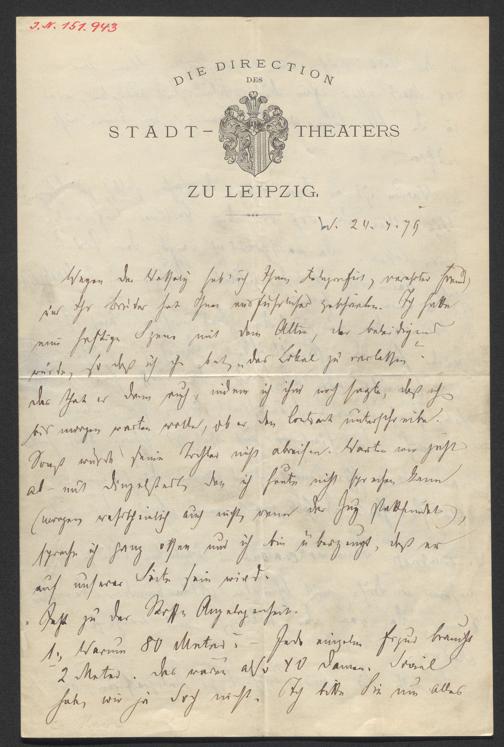 J.N. 151.943
DIE DIRECTION
DES
STADT- THEATERS
ZU LEIPZIG.
W. 24.4.79
Wegen der hab ich Ihnen telegrafirt, verehrter Freund,
Ihr Bruder hat Ihnen ausführlicher geschrieben. Ich hatte
eine heftige Szene mit dem Alten, der beleidigend
wurde, so daß ich ihn bat, das Lokal zu verlassen
das that er dann auch, indem ich ihm noch sagte, daß ich
bis morgen warten wolle, ob er den Contract unterschreibe.
Sonst würde seine Tochter nicht abreisen. Warten wir jetzt
ab - mit Dingelstedt, den ich heute nicht sprechen kann
(morgen wahrscheinlich auch nicht, wenn der Zug stattfindet),
sprach ich ganz offen und ich bin überzeugt, daß er
auf unserer Seite sein wird.
Jetzt zu der Stoff Angelegenheit.
1, Warum 80 Meter? - Jede einzelne Figur braucht
2 Meter. das wären also 40 Damen. Soviel
haben wir ja doch nicht. Ich bitte Sie nun alles